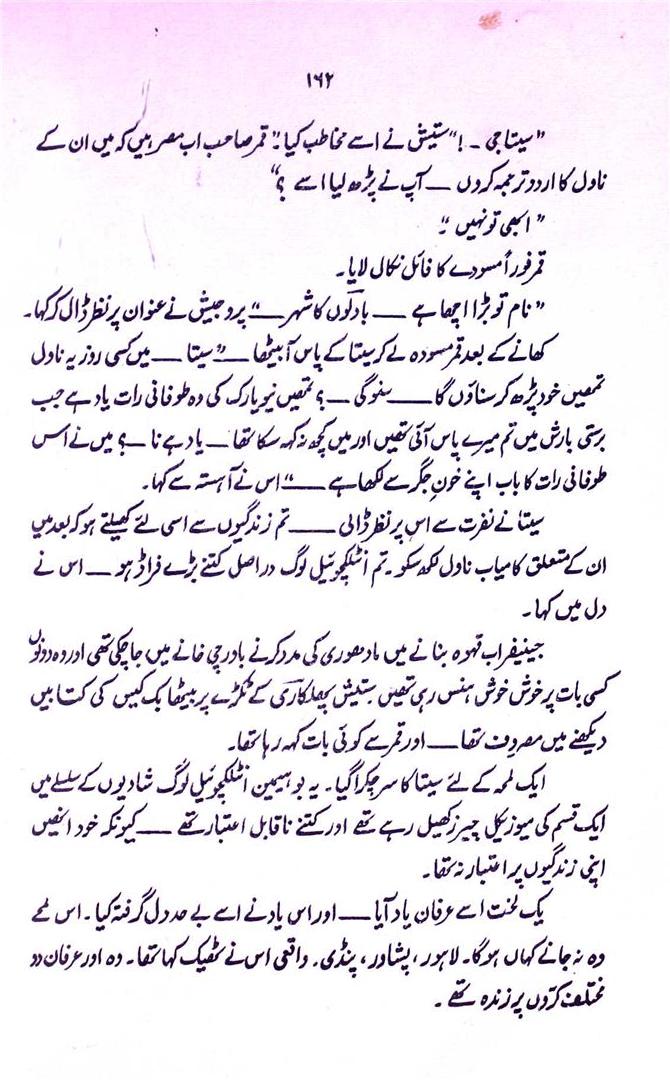 ۱۶۲
"سیتاجی ۔ !" ستیش نے اسے مخاطب کیا۔ "قمر صاحب اب مصر ہیں کہ میں ان کے
ناول کا اردو ترجمہ کردوں —— آپ نے پڑھ لیا اسے ؟"
"ابھی تو نہیں ۔"
قمر فوراً مسودے کا فائل نکال لایا۔
"نام تو بڑا اچھا ہے —— بادلوں کا شہر ——" پردجیش نے عنوان پر نظر ڈال کر کہا۔
کھانے کے بعد قمر مسودہ لے کر سیتا کے پاس آ بیٹھا —— "سیتا —— میں کسی روز یہ ناول
تمھیں خود پڑھ کر سناؤں گا —— سنوگی —؟ تمھیں نیویارک کی وہ طوفانی رات یاد ہے جب
برستی بارش میں تم میرے پاس آئی تھیں اور میں کچھ نہ کہہ سکا تھا — یاد ہے نا —؟ میں نے اس
طوفانی رات کا باب اپنے خونِ جگر سے لکھا ہے ——" اس نے آہستہ سے کہا۔
سیتا نے نفرت سے اس پر نظر ڈالی —— تم زندگیوں سے اسی لئے کھیلتے ہو کہ بعد میں
ان کے متعلق کامیاب ناول لکھ سکو۔ تم انٹلکچوئیل لوگ دراصل کتنے بڑے فراڈ ہو — اس نے
دل میں کہا۔
جینیفر اب قہوہ بنانے میں ماد صوری کی مدد کرنے باورچی خانے میں جاچکی تھی اور وہ دونوں
کسی بات پر خوش خوش ہنس رہی تھیں۔ ستیش پھلکاری کے ٹکڑے پر بیٹھا بک کیس کی کتابیں
دیکھنے میں مصروف تھا —— اور قمر سے کوئی بات کہہ رہا تھا۔
ایک لمحہ کے لئے سیتا کا سر چکرا گیا۔ یہ بوہیمین انٹلکچوئیل لوگ شادیوں کے سلسلے میں
ایک قسم کی میوزیکل چیرز کھیل رہے تھے اور کتنے ناقابل اعتبار تھے —— کیونکہ خود انھیں
اپنی زندگیوں پر اعتبار نہ تھا۔
یک لخت اسے عرفان یاد آیا —— اور اس یاد نے اسے بے حد دل گرفتہ کیا۔ اس لمحے
وہ نہ جانے کہاں ہوگا۔ لاہور، پشاور، پنڈی۔ واقعی اس نے ٹھیک کہا تھا۔ وہ اور عرفان دو
مختلف کرّوں پر زندہ تھے ۔